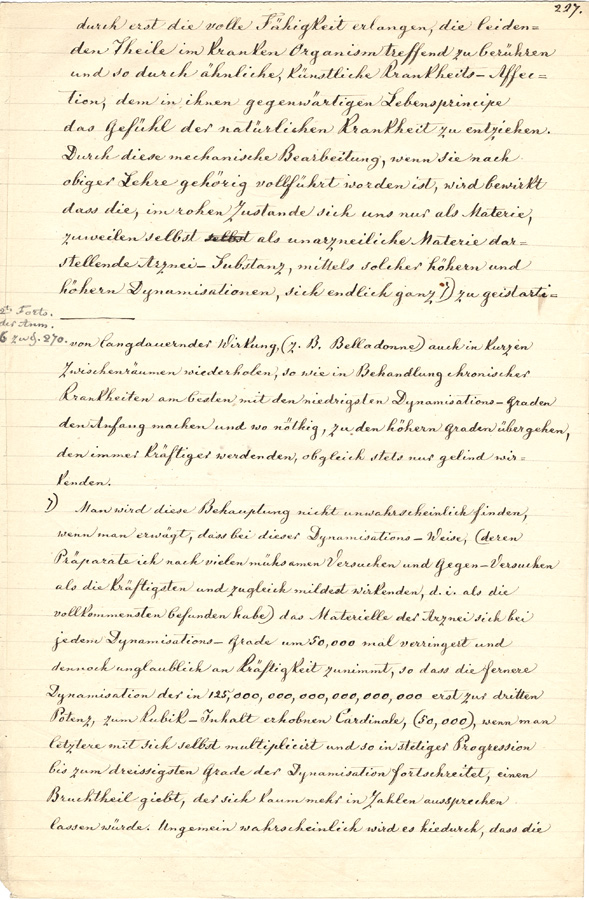 227.
durch erst die volle Fähigkeit erlangen, die leiden=
den Theile im kranken Organism treffend zu berühren
und so durch ähnliche, künstliche Krankheits-Affec=
tion, dem in ihnen gegenwärtigen Lebensprincipe
das Gefühl der natürlichen Krankheit zu entziehen.
Durch diese mechanische Bearbeitung, wenn sie nach
obiger Lehre gehörig vollführt worden ist, wird bewirkt
dass die, im rohen Zustande sich uns nur als Materie,
zuweilen selbst selbst als unarzneiliche Materie dar=
stellende Arznei-Substanz, mittels solcher höhern und
höhern Dynamisationen, sich endlich ganz 7) zu geistarti=
Forts.
der Anm.
6 zu §. 270.
von langdauernder Wirkung, (z. B. Belladonne) auch in kurzen
Zwischenräumen wiederholen, so wie in Behandlung chronischer
Krankheiten am besten, mit den niedrigsten Dynamisations-Graden
den Anfang machen und wo nöthig, zu den höhern Graden übergehen,
den immer kräftiger werdenden, obgleich stets nur gelind wir=
kenden.
7) Man wird diese Behauptung nicht unwahrscheinlich finden,
wenn man erwägt, dass bei dieser Dynamisations-Weise, (deren
Präparate ich nach vielen mühsamen Versuchen und Gegen-Versuchen
als die kräftigsten und zugleich mildest wirkenden, d. i. als die
vollkommensten befunden habe) das Materielle der Arznei sich bei
jedem Dynamisations-Grade um 50,000 mal verringert und
dennoch unglaublich an Kräftigkeit zunimmt, so dass die fernere
Dynamisation der in 125,000,000,000,000,000,000 erst zur dritten
Potenz, zum Kubik-Inhalt erhobnen Cardinale, (50,000), wenn man
letztere mit sich selbst multiplicirt und so in stetiger Progression
bis zum dreissigsten Grade der Dynamisation fortschreitet, einen
Bruchtheil giebt, der sich kaum mehr in Zahlen aussprechen
lassen würde. Ungemein wahrscheinlich wird es hiedurch, dass die